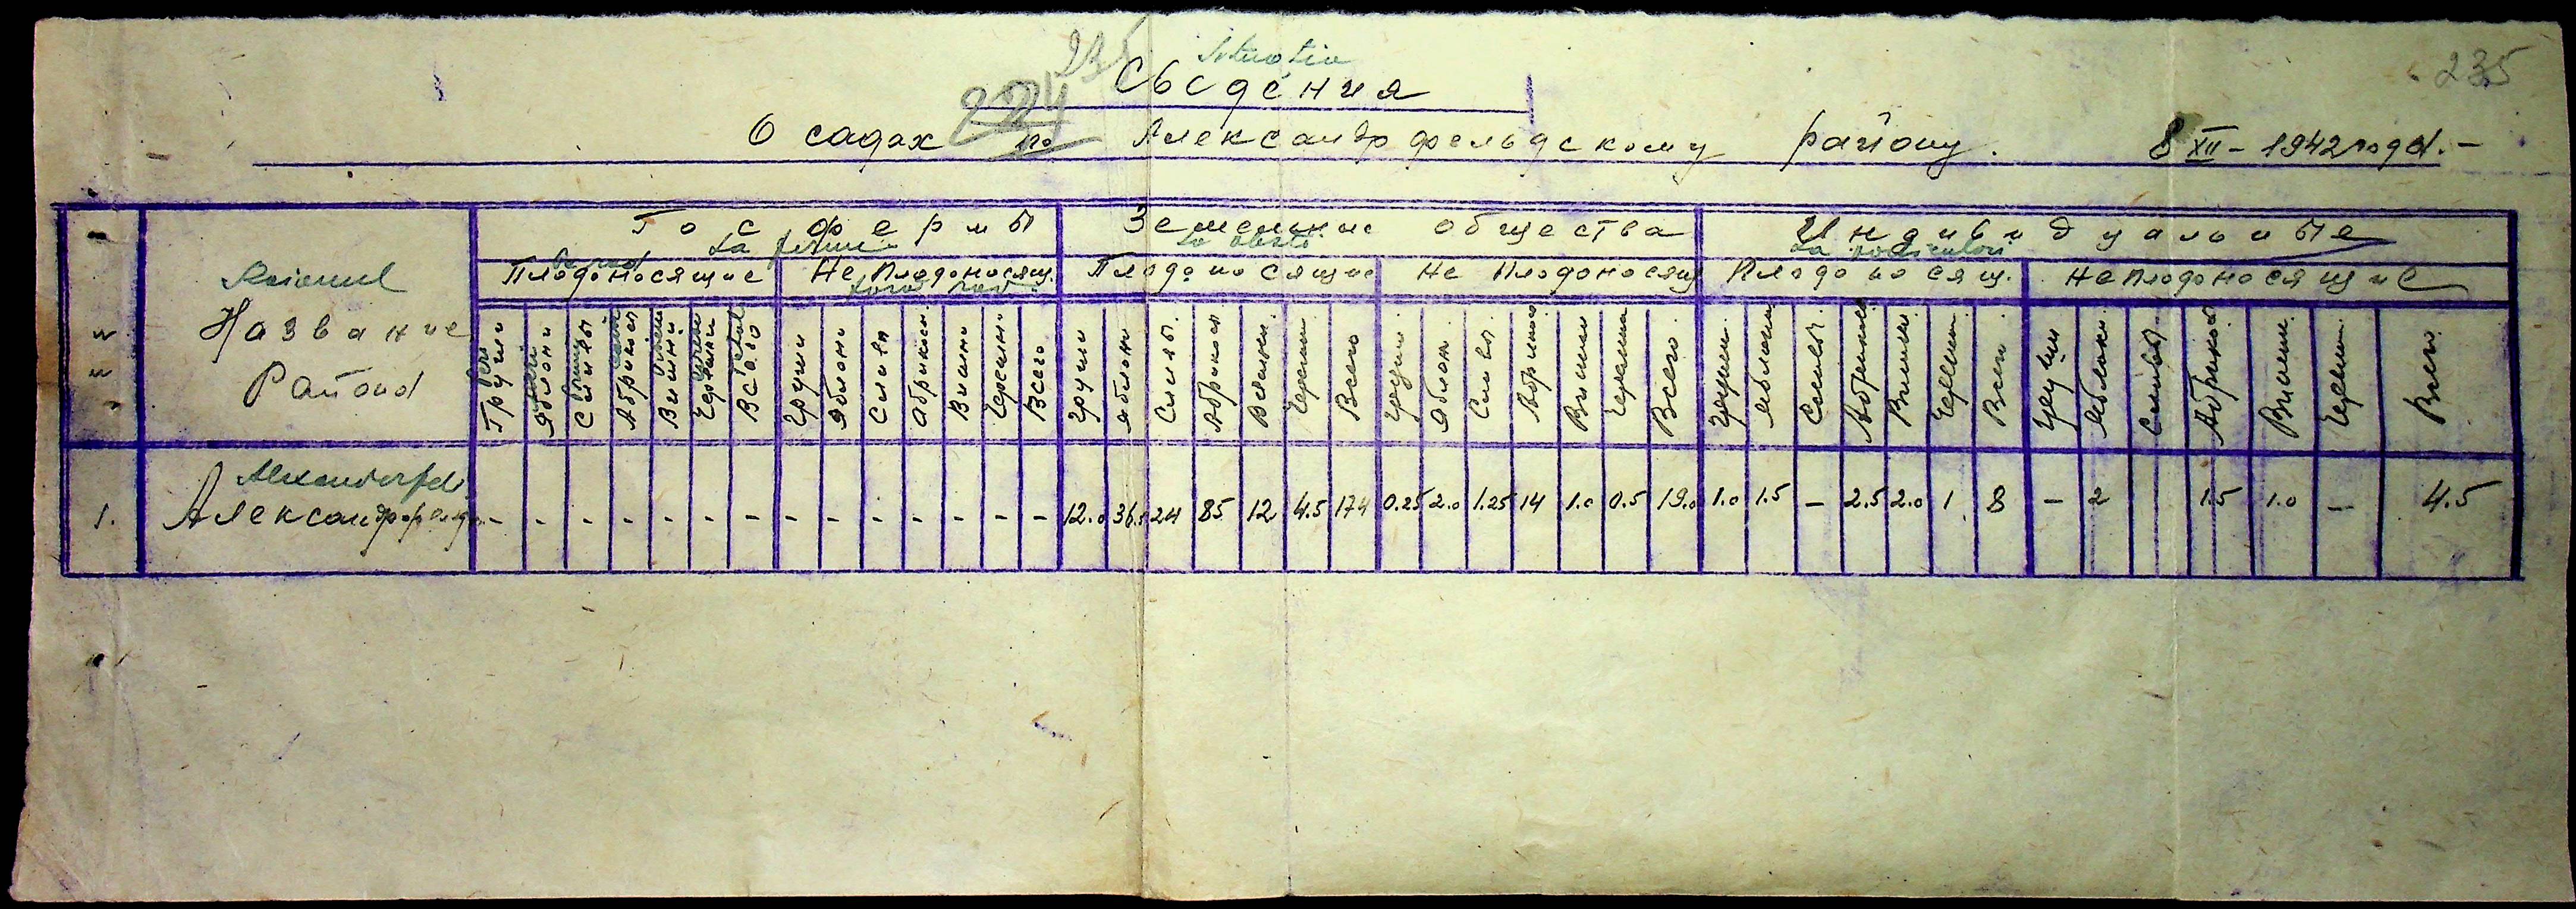 235
Situatia
235
Сведения
224
О садах по Александрфельдскому району. 8 XII - 1942 года. -
Гос фермы Земельные общества Индивидуальные
La ferme La obsti La particulari
Raionul
Плодоносящие Не Плодоносящ. Плодоносящие Не Плодоносящ Плодоносящ. Не плодоносящие
Название
Района
Груши Яблони Сливы Абрикосы Вишни Черешни Всего Груши Яблони Сливы Абрикосы Вишни Черешни Всего Груши Яблони Сливы. Абрикосы Вишни. Черешни Всего Груши Яблон. Сливы. Абрикос. Вишни Черешни Всего. Груши. Яблони Сливы. Абрикосы Вишни. Черешни. Всего Груши Яблоки. Сливы. Абрикос Вишни. Черешн. Всего.
Alexandorfeld
1. Александрфельд. - - - - - - - - - - - - - - 12.0 36.5 24 85 12 4.5 174 0.25 2.0 1.25 14 1.0 0.5 19.0 1.0 1.5 - 2.5 2.0 1 8 - 2 1.5 1.0 - 4.5